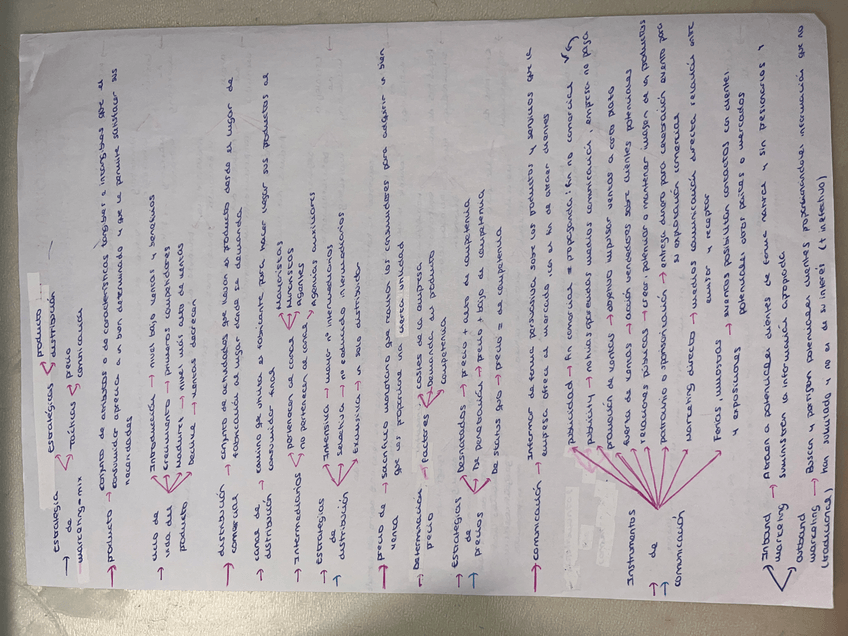 estrategia de marketing-mix → estratégicas → producto
distribución
→ tácticas → precio
comunicación
→ producto → conjunto de atributos o de características tangibles e intangibles que el
consumidor aprecia a un bien determinado y que le permite satisfacer sus
necesidades
→ ciclo de vida del producto → Introducción → nivel bajo ventas y beneficios
Crecimiento → primeros competidores
Madurez → nivel más alto de ventas
Declive → ventas decrecen
→ distribución comercial → conjunto de actividades que llevan el producto desde el lugar de
fabricación al lugar donde se demanda
→ canal de distribución → camino que utiliza el fabricante para hacer llegar sus productos al
consumidor final
→ Intermediarios → pertenecen al canal → Mayoristas
Minoristas
→ no pertenecen al canal → agentes
agencias auxiliares
→ estrategias de distribución → Intensiva → mayor nº intermediarios
Selectiva → nº reducido intermediarios
Exclusiva → un solo distribuidor
→ precio de venta → sacrificio monetario que realizan los consumidores para adquirir un bien
que les proporcione una cierta utilidad
→ Determinación precio → factores → costes de la empresa
Demanda del producto
competencia
→ Estrategias de precios → Desnatados → precio + alto de competencia
De penetración → precio + bajo de competencia
De status quo → precio = de competencia
→ comunicación → Informar de forma persuasiva sobre los productos y servicios que la
empresa ofrece al mercado con el fin de atraer clientes
→ Instrumentos de comunicación
publicidad → fin comercial ≠ propaganda: fin no comercial
publicity → noticias aparecidas medios comunicación, empresa no paga
promoción de ventas → objetivo impulsar ventas a corto plazo
fuerza de ventas → acción vendedores sobre clientes potenciales
relaciones públicas → crear, potenciar o mantener imagen de los productos
patrocinio o sponsorización → entrega dinero para celebración evento para
su explotación comercial
Marketing directo → medios comunicación directa relación entre
emisor y receptor
Ferias, muestras y exposiciones → eventos posibilitan contactos con clientes
potenciales otros países o mercados
Inbound marketing → Atraen a potenciales clientes de forma natural y sin presionarlos y
suministran la información apropiada
outbound marketing (tradicional) → Buscan y persiguen potenciales clientes proporcionándoles información que no
han solicitado y no es de su interés (+ inefectivo)